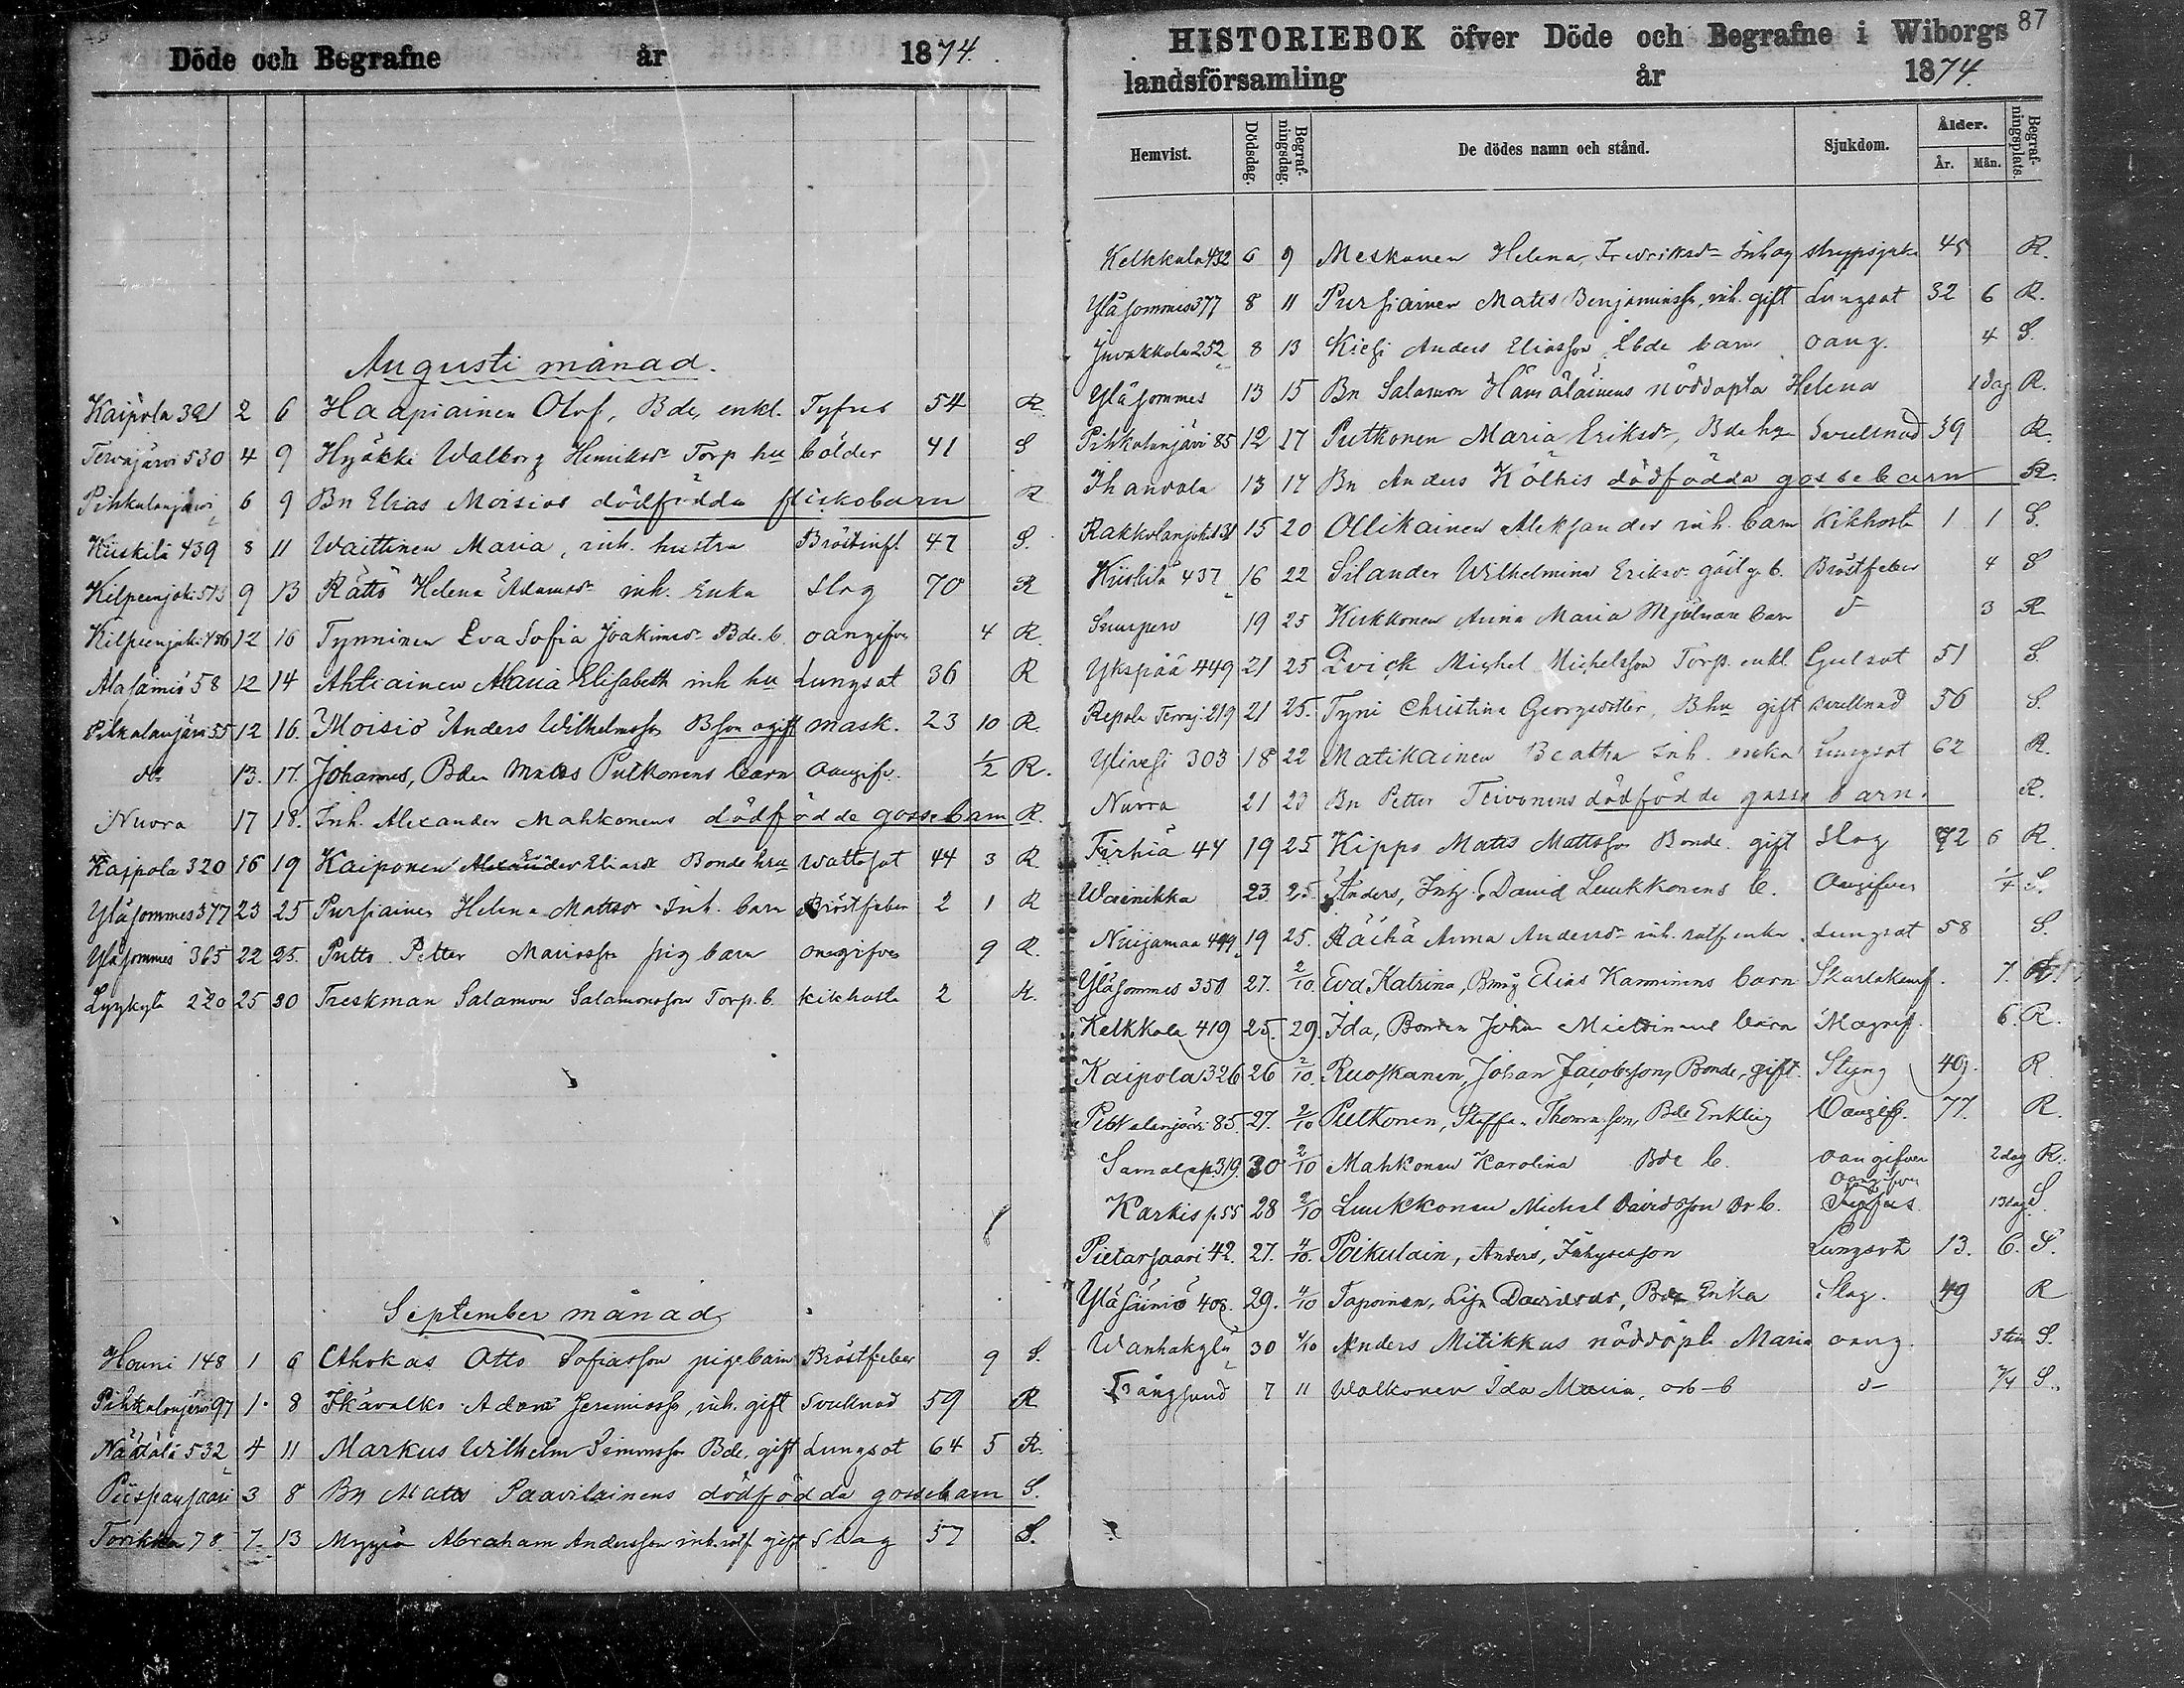 Döde och Begrafne år 1874.
Augusti månad.
Kaipola 321 2 6 Haapiainen Olof, Bde, enkl. Tyfus 54 R
Tervajärvi 530 4 9 Hyökki Walborg Henriksdr Torp hu bölder 41 S
Pihkalanjärvi 6 9 Bn Elias Moisios dödfödda flickobarn R
Kiiskilä 439 8 11 Waittinen Maria, inh. hustru Bröstinfl 47 S.
Kilpeenjoki 513 9 13 Rättö Helena Adamsdr inh. Enka Slag 70 R
Kilpeenjoki 486 12 16 Tynninen Eva Sofia Joakimsdr Bde. b. oangifven 4 R.
Alasäiniö 58 12 14 Ahtiainen Maria Elisabeth inh hu Lungsot 36 R
Pihkalanjärvi 55 12 16. Moisio Anders Wilhelmsson Bson ogift mask. 23 10 R.
do 13. 17. Johannes, Bden Matts Putkonens barn Oangifv. 1/2 R.
Nuora 17 18. Inh. Alexander Mahkonens dödfödde gossebarn R.
Kaipola 320 16 19 Kaiponen Eliasdr Bonde hru wattsot 44 3 R
Yläsommes 377 23 25 Pursiainen Helena Mattsdr Inh. barn Bröstfeber 2 1 R
Yläsommes 365 22 25. Putto Petter Mariasson pig barn oangifven 9 R.
Lyykylä 220 25 30 Treskman Salamon Salamonsson Torp. b. kikhosta 2 R.
September månad
Houni 148 1 6 Ahokas Otto Sofiasson pigebarn Bröstfeber 9 S.
Pihkalanjärvi 97 1. 8 Ikävalko Adam Jeremiasson, inh. gift Svullnad 59 R
Näätälä 532 4 11 Markus Wilhelm Simonsson Bde, gift Lungsot 64 5 R.
Piispansaari 3 8 Bn Matts Paavilainens dödfödda gossebarn S.
Torikka 78 7. 13 Myyrä Abraham Andersson inh. rotf gift Slag 57 S.
HISTORIEBOK öfver Döde och Begrafne i Wiborgs 87
landsförsamling år 1874.
Hemvist. Dödsdag. Begrafningsdag. De dödes namn och stånd. Sjukdom. Ålder. År. Mån. Begrafningsplats.
Kelkkala 432 6 9 Meskanen Helena Fredriksdr Inh og strypsjuka 45 R.
Yläsommes 377 8 11 Pursiainen Matts Benjaminsson, inh. gift Lungsot 32 6 R.
Juvakkala 252 8 13 Kiesi Anders Eliasson Bde barn oang. 4 S.
Yläsommes 13 15 Bn Salamon Hämäläinens nöddöpta Helena 1 dag R.
Pihkalanjärvi 85 12 17 Putkonen Maria Eriksdr, Bde hu Svullnad 39 R.
Ihantala 13 17 Bn Anders Kölhis dödfödda gossebarn R.
Rakkolanjoki 131 15 20 Ollikainen Aleksander inh. barn Kikhosta 1 1 S.
Kiiskilä 437 16 22 Silander Wilhelmina Eriksdr b. Bröstfeber 4 S
Suurpero 19 25 Kukkonen Anna Maria Mjölnare barn d- 3 R
Ykspää 449 21 25 Qvick Michel Michelsson Torp. enkl. Gulsot 51 S.
Repola Tervaj. 219 21 25. Tyni Christina Georgsdotter, Bhu gift svullnad 56 S.
Ylivesi 303 18 22 Matikainen Beatha Inh. enka Lungsot 62 R.
Nurra 21 23 Bn Petter Teivonens dödfödde gossebarn. R.
Tirhiä 44 19 25 Kippo Matts Mattsson Bonde gift Slag 72 6 R.
Wainikka 23. 25. Anders, David Luukkonens b. Oangifven 1/4 S.
Nuijamaa 499 19 25. Räihä Anna Andersdr inh. rotf enka Lungsot 58 S.
Yläsommes 350 27. 2/10. Eva Katrina, Elias Kamminens barn Skarlakansf. 7. R.
Kelkkala 419 25. 29. Ida, Bonden Johan Miettinens barn Magref. 6. R.
Kaipola 326 26 2/10. Ruoskanen, Johan Jacobsson, Bonde, gift. Styng 49. R
Pihkalanjärvi 85. 27. 2/10 Putkonen, Staffan Thomasson, Bde Enkling Oangifv. 77. R.
Samola p. 319. 30 2/10 Mahkonen Karolina Bde b. oangifven 2 dag R.
Karkis p 55 28 2/10 Luukkonen Michel Davidsson Br b. oangifven 13 dag S.
Pietarsaari 42. 27. 4/10. Paikulain, Anders, Inhysesson Lungsot 13. 6. S.
Yläsäiniö 408. 29. 4/10 Taponen, Lisa Davidsdr, Bde Enka Slag. 49 R
Wanhakylä 30 4/10 Anders Mitikkas nöddöpt. Maria oang. 3 tim S.
Trångsund 7 11 Walkonen Ida Maria, arb-b d- 3/4 S.